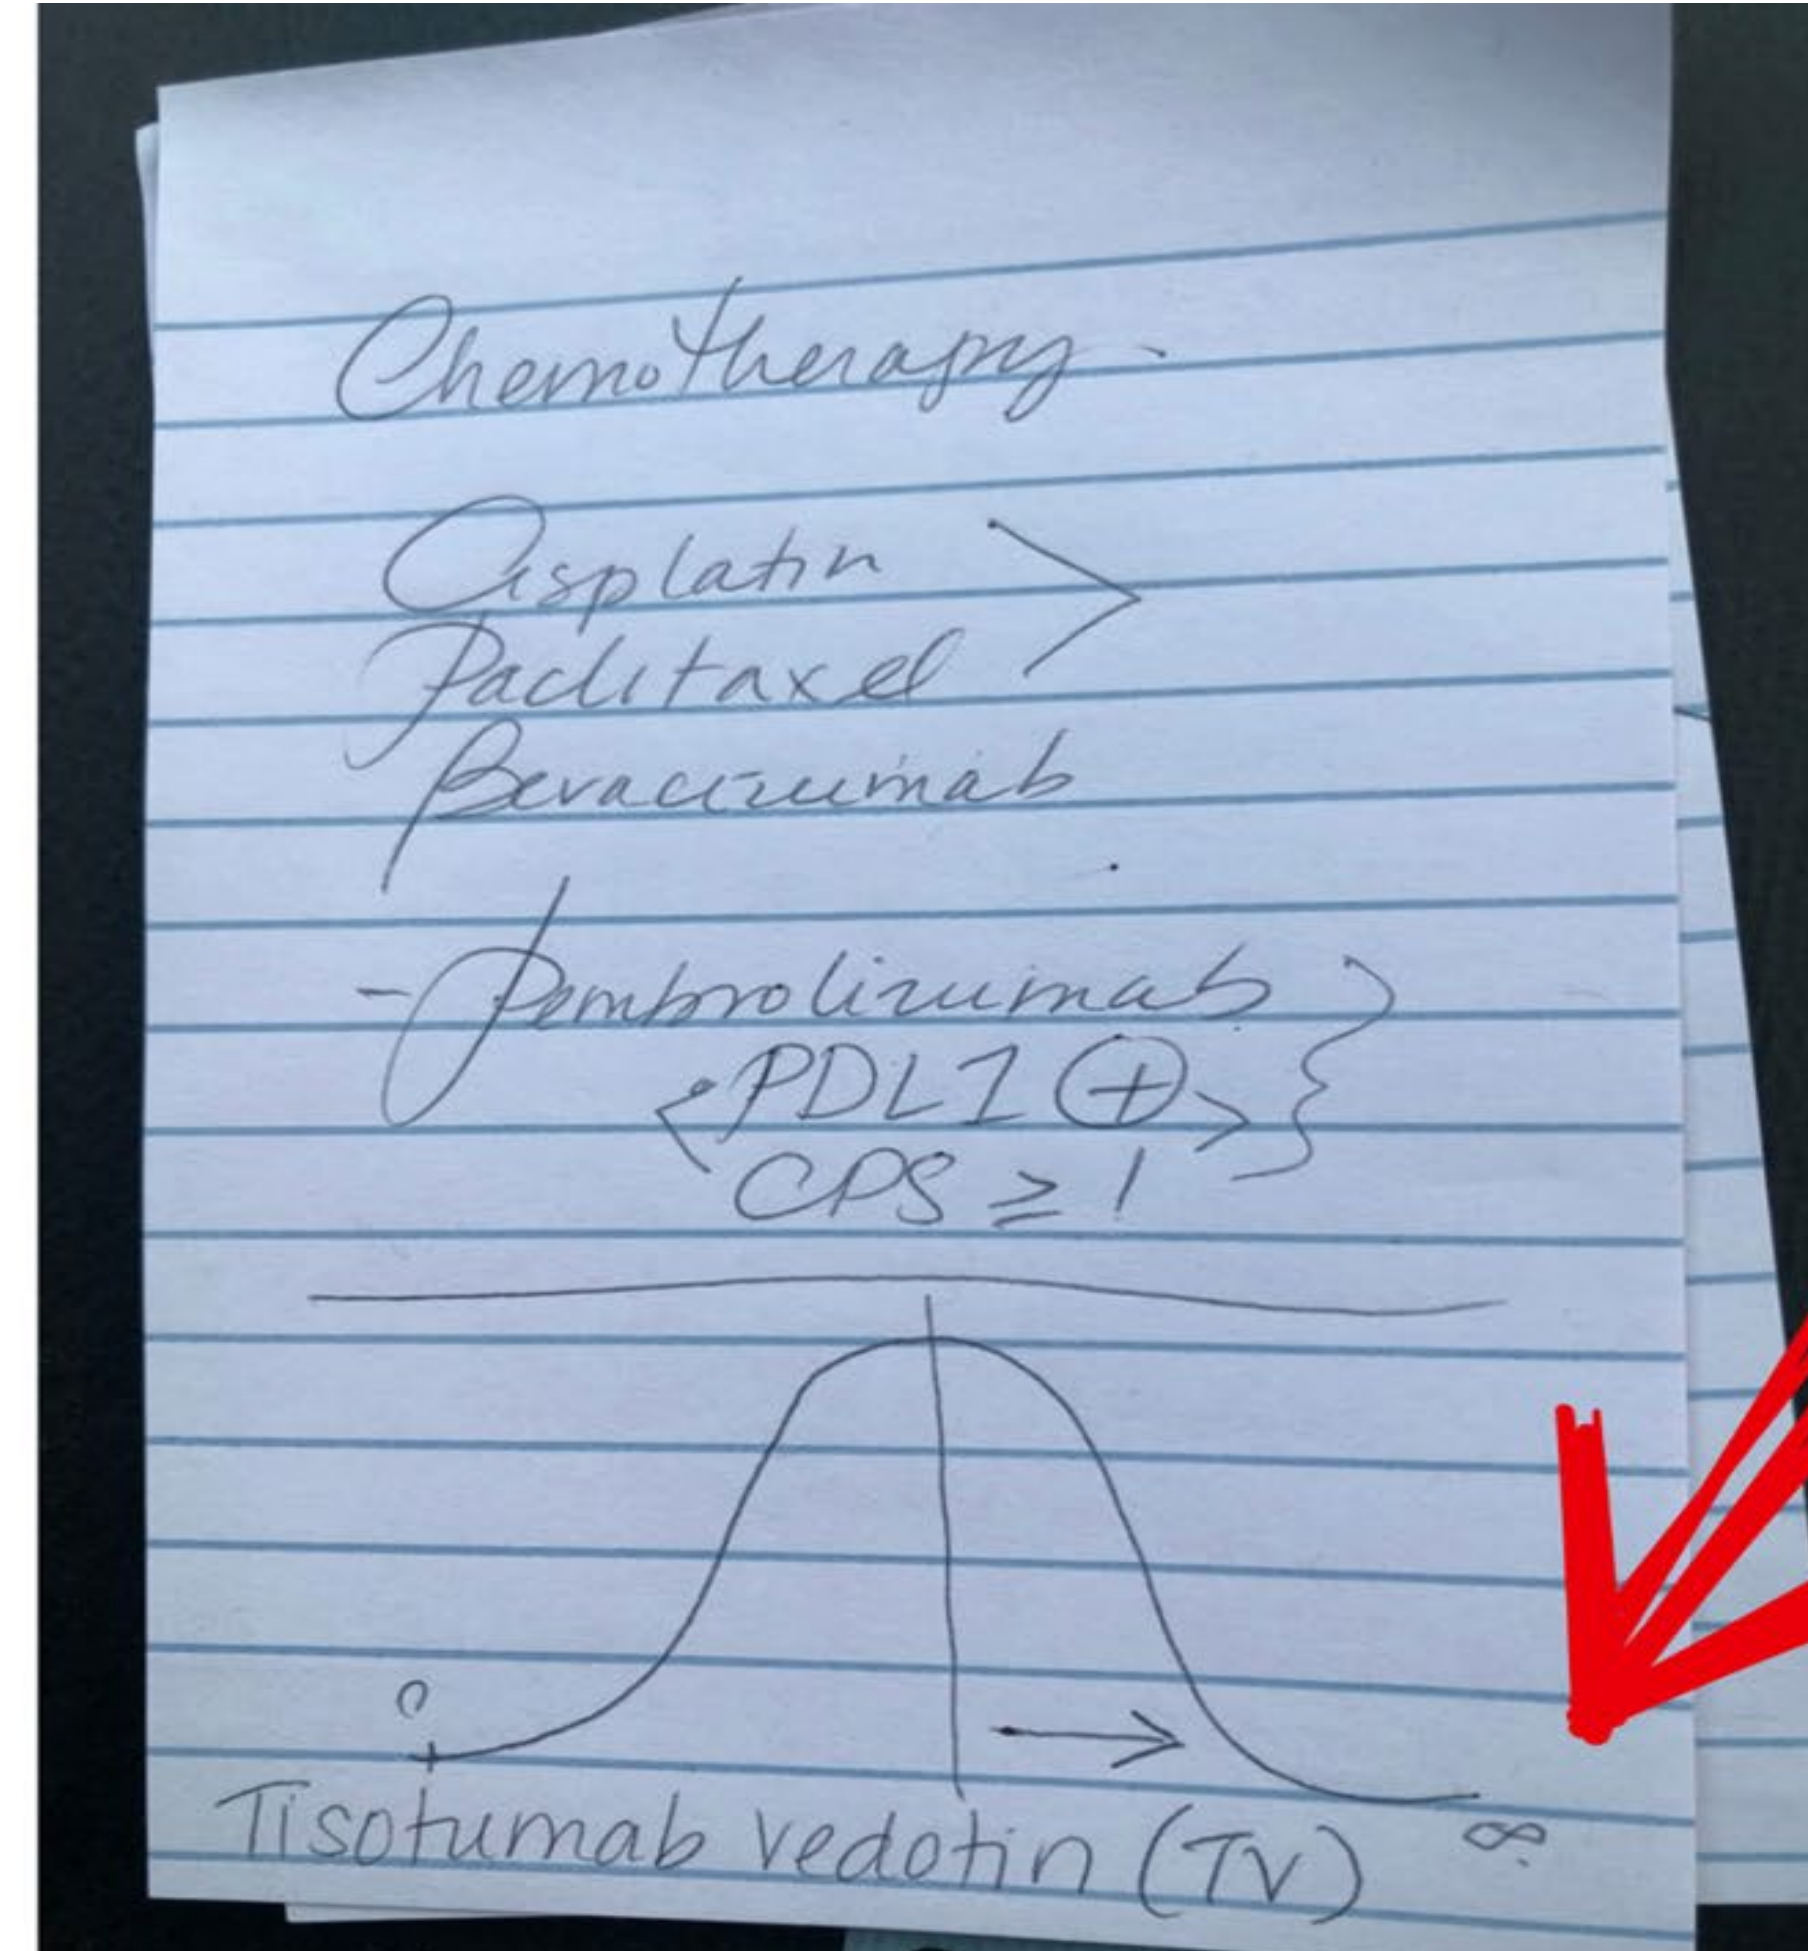 Chemotherapy
Cisplatin >
Paclitaxel
Bevacizumab
- Pembrolizumab
<PDL1 ⊕>
CPS ≥ 1
0
Tisotumab vedotin (TV)
∞